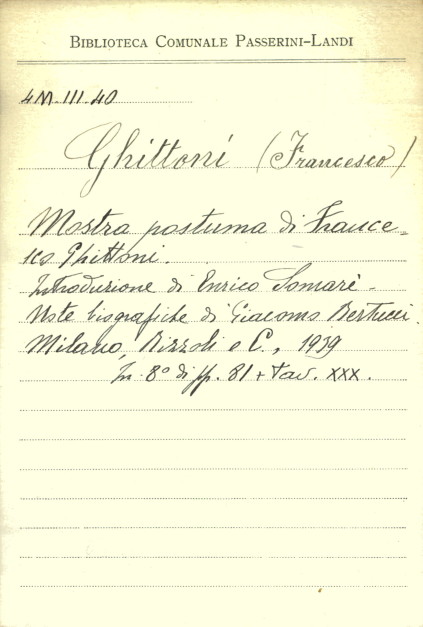 BIBLIOTECA COMUNALE PASSERINI-LANDI
4M.III.40
Ghittoni (Francesco)
Mostra postuma di France-
sco Ghittoni.
Introduzione di Enrico Somarè.
Note biografiche di Giacomo Bertucci.
Milano, Rizzoli e C., 1939
In-8° di pp. 81 + tav. XXX.